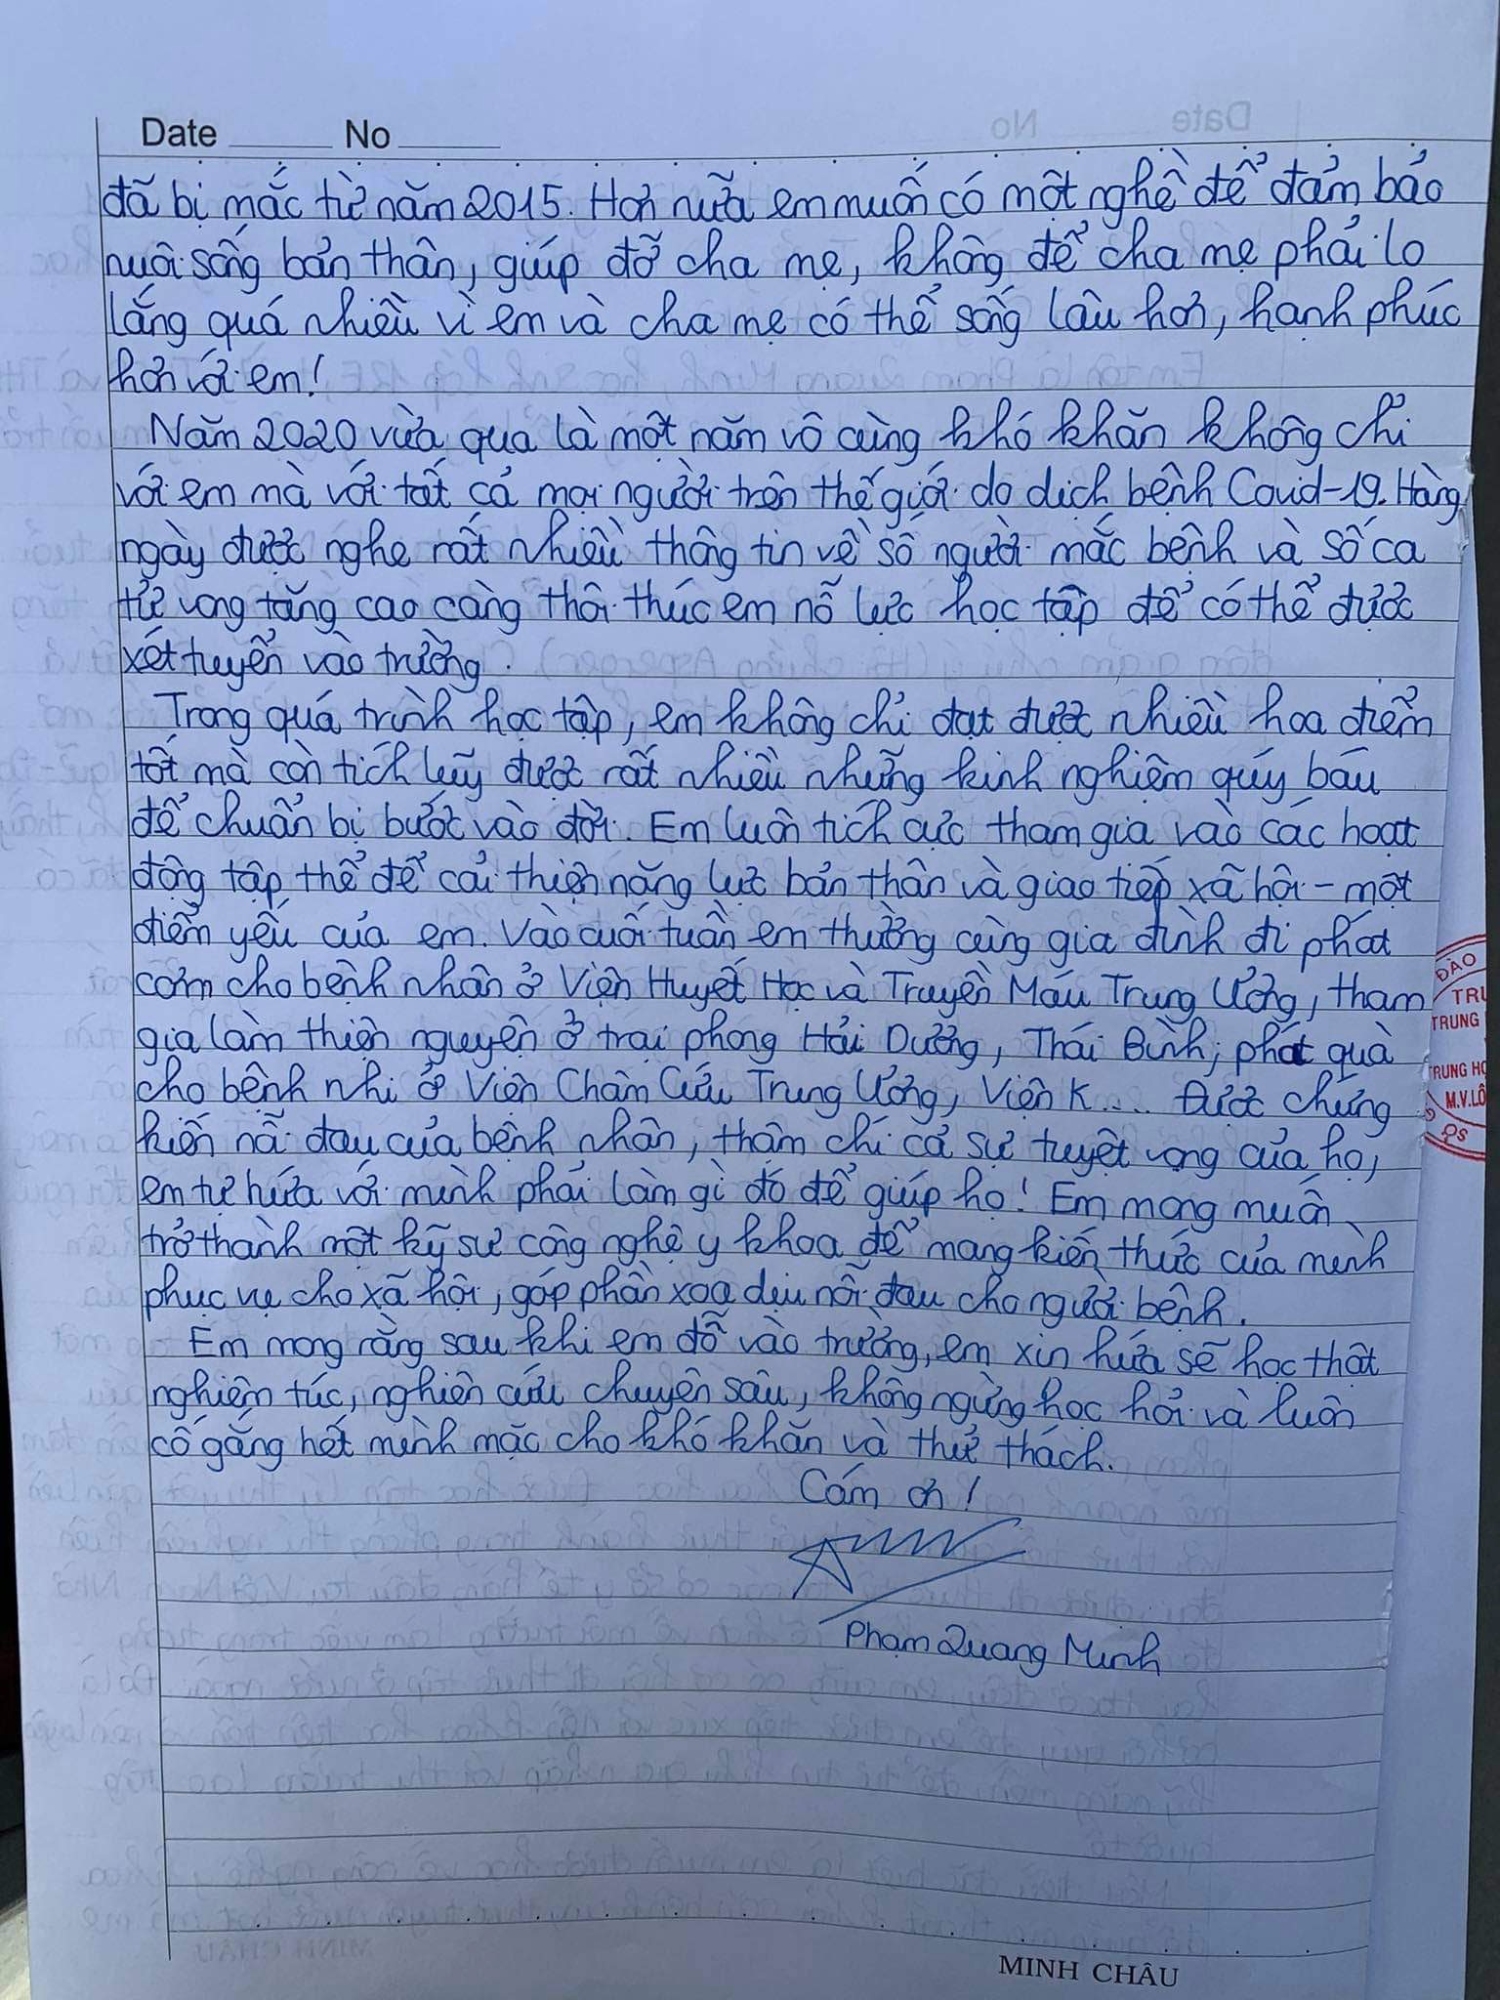 Date No
đã bị mắc từ năm 2015. Hơn nữa em muốn có một nghề để đảm bảo
nuôi sống bản thân, giúp đỡ cha mẹ, không để cha mẹ phải lo
lắng quá nhiều vì em và cha mẹ có thể sống lâu hơn, hạnh phúc
hơn với em!
Năm 2020 vừa qua là một năm vô cùng khó khăn không chỉ
với em mà với tất cả mọi người trên thế giới do dịch bệnh Covid-19. Hàng
ngày được nghe rất nhiều thông tin về số người mắc bệnh và số ca
tử vong tăng cao càng thôi thúc em nỗ lực học tập để có thể được
xét tuyển vào trường.
Trong quá trình học tập, em không chỉ đạt được nhiều hoa điểm
tốt mà còn tích luỹ được rất nhiều những kinh nghiệm quý báu
để chuẩn bị bước vào đời. Em luôn tích cực tham gia vào các hoạt
động tập thể để cải thiện năng lực bản thân và giao tiếp xã hội - một
điểm yếu của em. Vào cuối tuần em thường cùng gia đình đi phát
cơm cho bệnh nhân ở Viện Huyết Học và Truyền Máu Trung Ương, tham
gia làm thiện nguyện ở trại phong Hải Dương, Thái Bình, phát quà
cho bệnh nhi ở Viện Châm Cứu Trung Ương, Viện K.... Được chứng
kiến nỗi đau của bệnh nhân, thậm chí cả sự tuyệt vọng của họ,
em tự hứa với mình phải làm gì đó để giúp họ! Em mong muốn
trở thành một kỹ sư công nghệ y khoa để mang kiến thức của mình
phục vụ cho xã hội, góp phần xoa dịu nỗi đau cho người bệnh.
Em mong rằng sau khi em đỗ vào trường, em xin hứa sẽ học thật
nghiêm túc, nghiên cứu chuyên sâu, không ngừng học hỏi và luôn
cố gắng hết mình mặc cho khó khăn và thử thách.
Cám ơn!
Phạm Quang Minh
ĐÀO
TRUNG
TRUNG HỌ
M.V.LÔ
MINH CHÂU